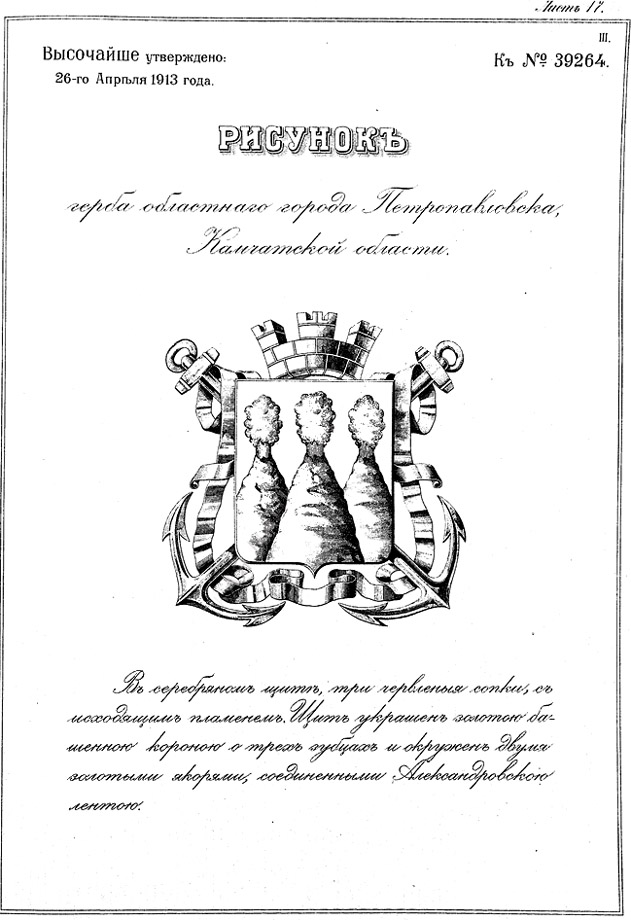 Листъ 17.
III.
Высочайше утверждено:
Къ № 39264.
26-го Апрѣля 1913 года.
РИСУНОКЪ
герба областнаго города Петропавловска,
Камчатской области.
Въ серебряномъ щитѣ, три червленыя сопки, съ
исходящимъ пламенемъ. Щитъ украшенъ золотою ба-
шенною короною о трехъ зубцахъ и окруженъ двумя
золотыми якорями, соединенными Александровскою
лентою.